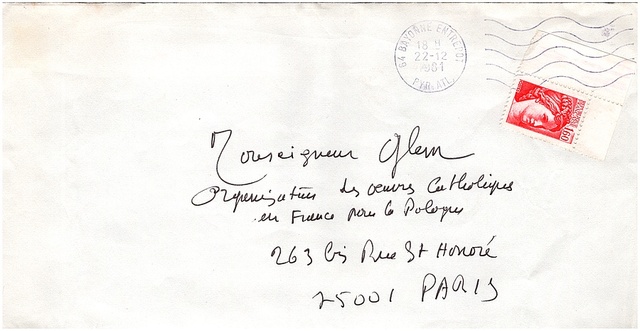 64 BAYONNE ENTREPOT
18 H
22-12
1981
PYR.ATL.
1,60
Monseigneur Glem
Organisation des oeuvres Catholiques
en France pour la Pologne
263 bis Rue St Honoré
75001 PARIS